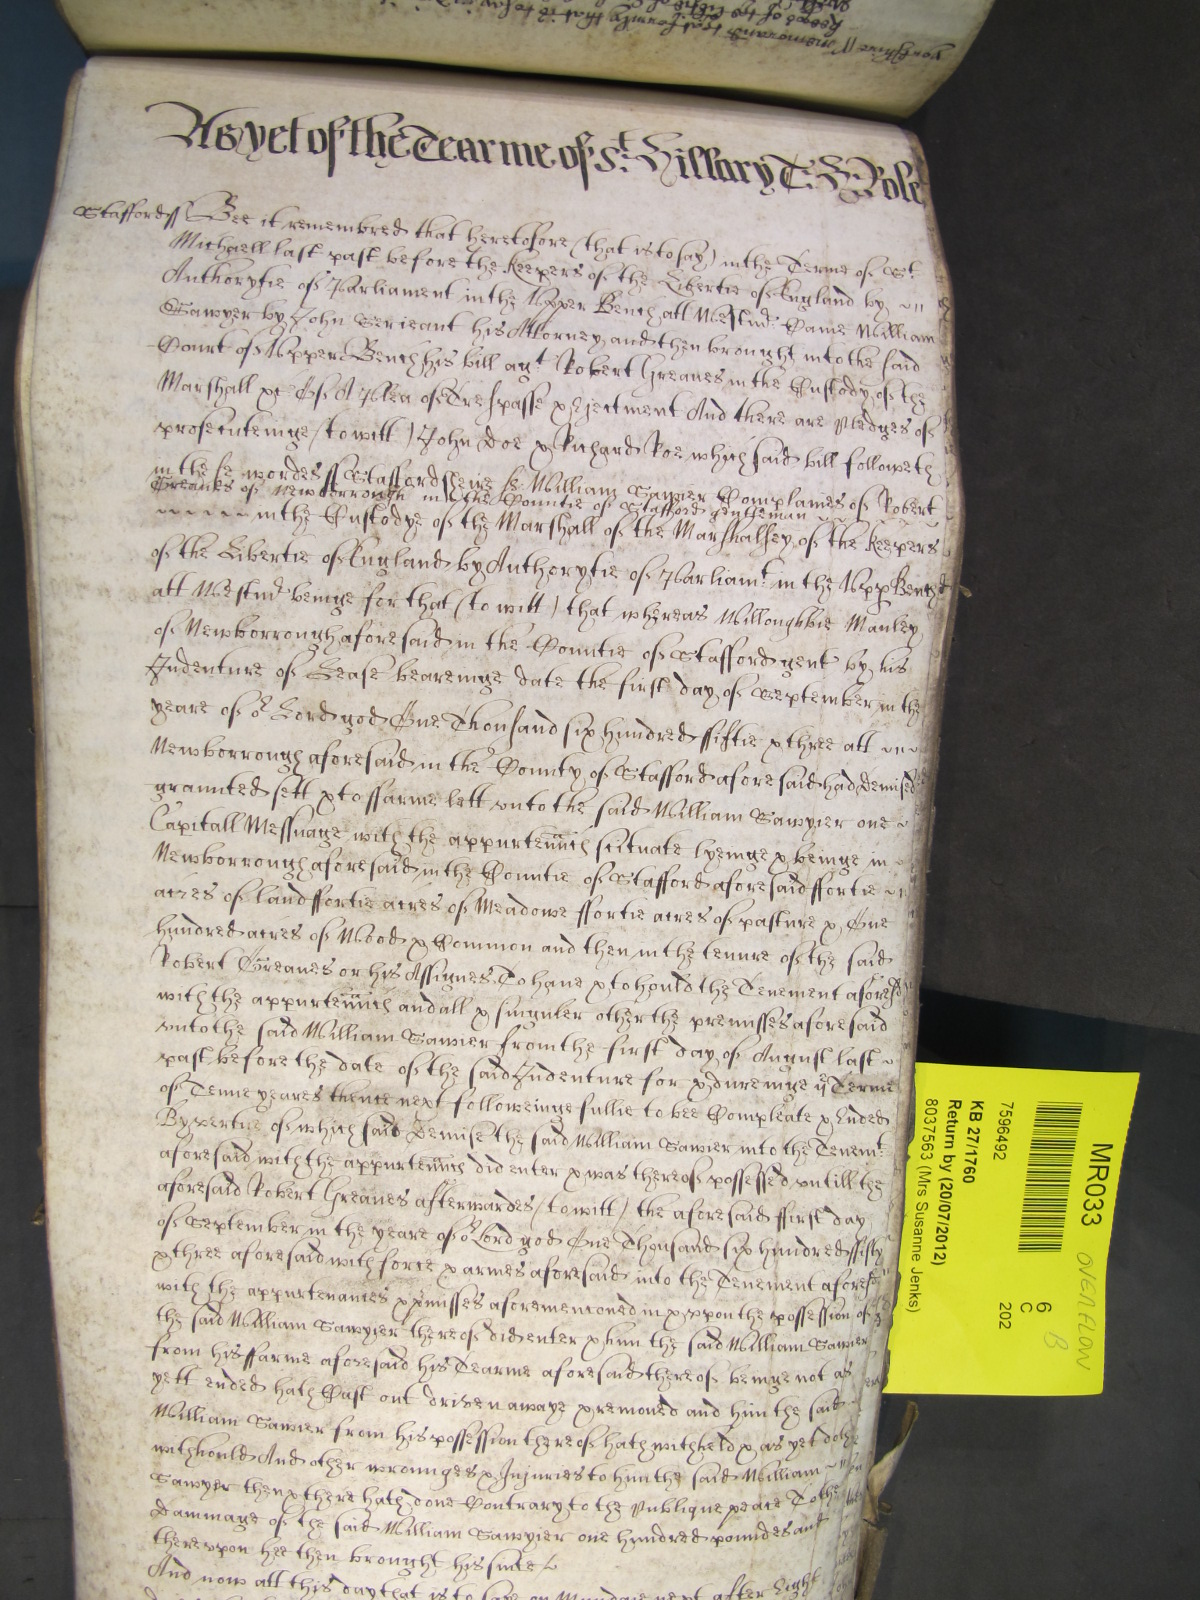 As yet of the Tearme of St. Hillary T: S: Role
Staffordss Bee it remembred that heretofore (that is to say) in the Terme of St.
Michaell last past before the Keepers of the Libertie of England by
Authorytie of Parliament in the Upper Bench att Westmr. Came William
Sawyer by John Serieant his Attorney and then brought into the said
Court of Upper Bench his bill agt. Robert Greaves in the Custody of the
Marshall &c Of A Plea of Trespasse & Ejectment And there are pledges of
prosecuteinge (to witt) John Doe & Richard Roe which said bill followeth
in these wordes ss Staffordsheire ss William Sawier Complaines of Robert
Greaves of Newborrough in the Countie of Stafford gentleman
in the Custodye of the Marshall of the Marshalsey of the Keepers
of the Libertie of England by Authorytie of Parliamt. in the Upp Bench
att Westmr beinge for that (to witt) that whereas Willoughbie Manley
of Newborrough aforesaid in the Countie of Stafford gent by his
Indenture of Lease beareinge date the first day of September in the
yeare of or Lord god One Thousand six hundred fiftie & three att
Newborrough aforesaid in the County of Stafford aforesaid had demised
graunted sett & to ffarme lett unto the said William Sawyier one
Capitall Messuage with the appurtennces scituate lyeinge & beinge in
Newborrough aforesaid in the Countie of Stafford aforesaid ffortie
acres of land ffortie acres of Meadowe ffortie acres of pasture & One
hundred acres of Wood & Common and then in the tenure of the said
Robert Greaves or his Assignes To have & to hould the Tenement aforesd
with the appurtennces and all & singuler other the premisses aforesaid
unto the said William Sawier from the first day of August last
past before the date of the said Indenture for & dureinge ye Terme
of Tenne yeares thence next followeinge fullie to bee Compleate & Ended
By vertue of which said Demise the said William Sawier into the Tenemt.
aforesaid with the appurtennces did enter & was thereof possessed untill the
aforesaid Robert Greaves afterwardes (to witt) the aforesaid ffirst day
of September in the yeare of or Lord god One Thousand six hundred ffifty
& three aforesaid with force & armes aforesaid into the Tenement aforesd
with the appurtenances & pmisses aforementioned in & uppon the possession of
the said William Sawyier thereof did enter & him the said William Sawier
from his ffarme aforesaid his Tearme aforesaid thereof beinge not as
yett ended hath Cast out driven awaye & removed and him the said
William Sawier from his possession thereof hath withheld & as yet dothe
withhould And other wrounges & Injuries to him the said William
Sawyer then & there hath done Contrary to the Publique peace To the
dammage of the said William Sawyier one hundred poundes and
thereupon hee then brought his suite
And now att this day that is to say on Mundaie next after Eight
MR033
OVERFLOW
B
6
C
202
7596492
KB 27/1760
Return by (20/07/2012)
8037563 (Mrs Susanne Jenks)